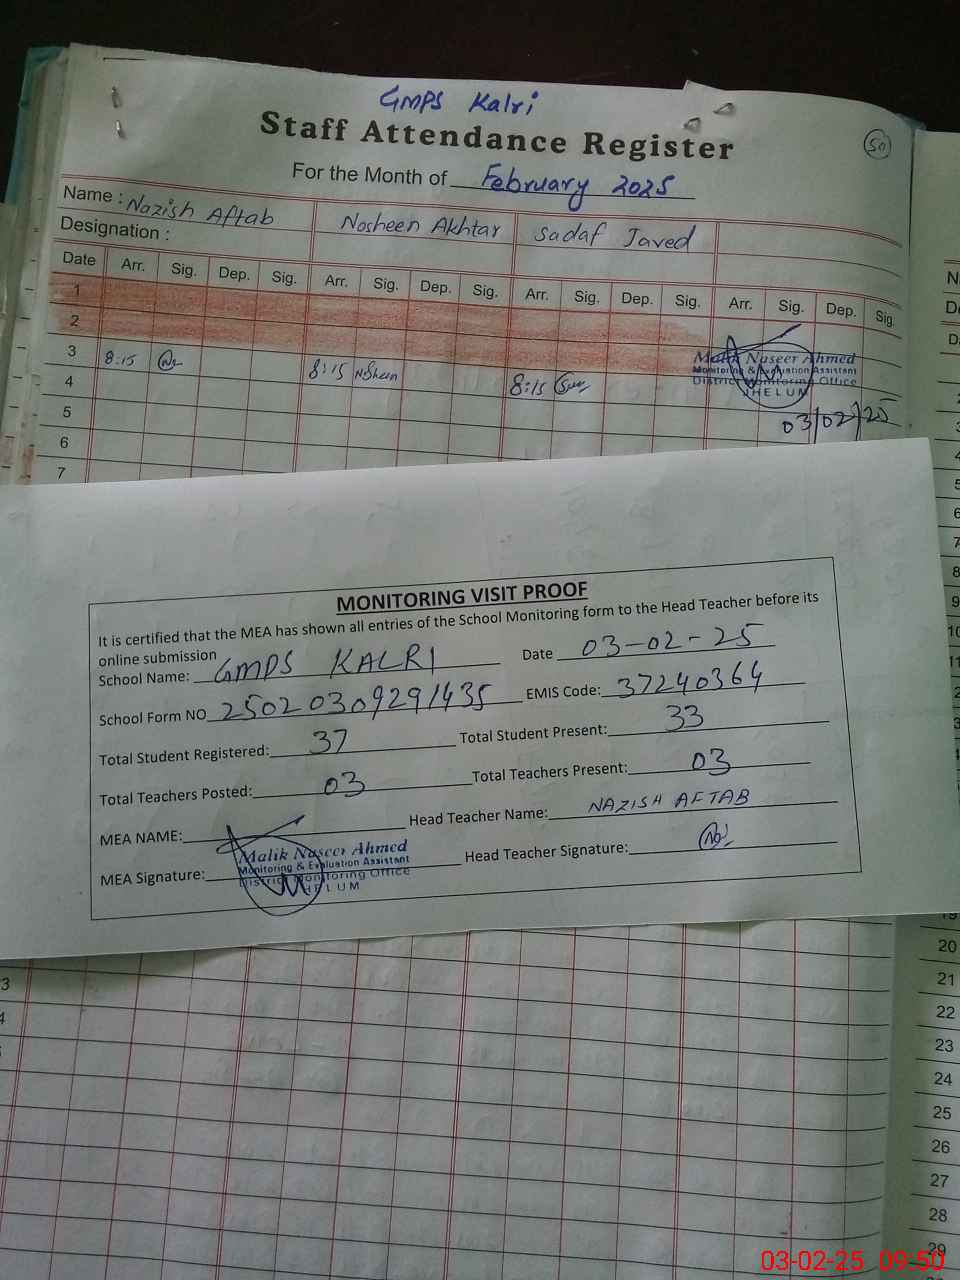 GMPS Kalri
Staff Attendance Register
50
For the Month of February 2025
Name : Nazish Aftab Nosheen Akhtar Sadaf Javed
Designation :
Date Arr. Sig. Dep. Sig. Arr. Sig. Dep. Sig. Arr. Sig. Dep. Sig. Arr. Sig. Dep. Sig.
1
2
3 8:15 8:15 Nosheen 8:15
Malik Naseer Ahmed
Monitoring & Evaluation Assistant
District Monitoring Office
JHELUM
03/02/25
4
5
6
7
MONITORING VISIT PROOF
It is certified that the MEA has shown all entries of the School Monitoring form to the Head Teacher before its
online submission
School Name: GMPS KALRI Date 03-02-25
School Form NO 25020309291435 EMIS Code: 37240364
Total Student Registered: 37 Total Student Present: 33
Total Teachers Posted: 03 Total Teachers Present: 03
MEA NAME: Head Teacher Name: NAZISH AFTAB
Malik Naseer Ahmed
Monitoring & Evaluation Assistant
District Monitoring Office
JHELUM
MEA Signature: Head Teacher Signature:
19
20
21
22
23
24
25
26
27
28
29
03-02-25 09:50